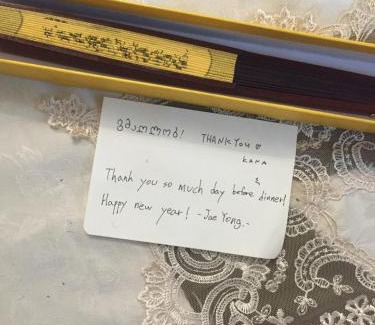 გმადლობ! THANK YOU ♡
KANA
&
Thank you so much day before dinner!
Happy new year! -Jae Yong.-